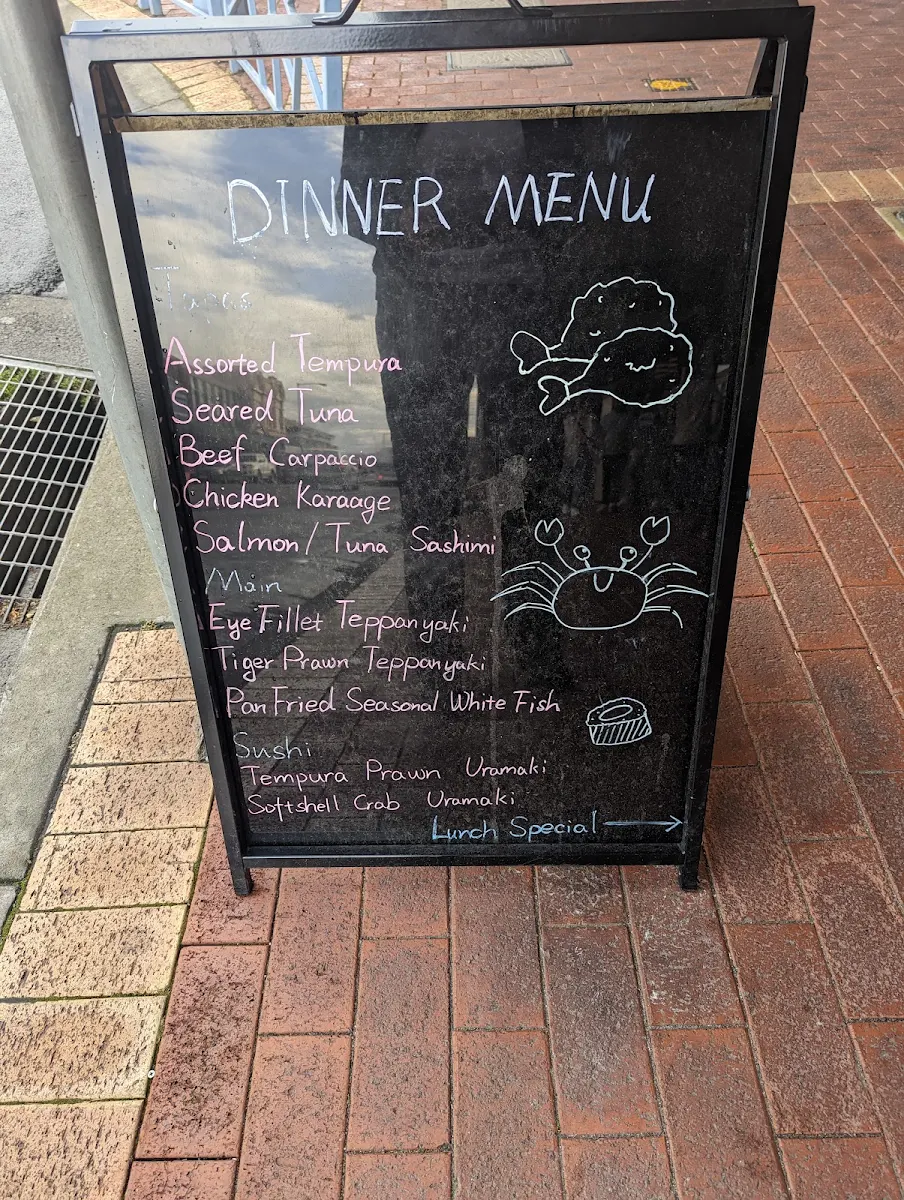 DINNER MENU
Tapas
Assorted Tempura
Seared Tuna
Beef Carpaccio
Chicken Karaage
Salmon/Tuna Sashimi
Main
Eye Fillet Teppanyaki
Tiger Prawn Teppanyaki
Pan Fried Seasonal White Fish
Sushi
Tempura Prawn Uramaki
Softshell Crab Uramaki
Lunch Special →